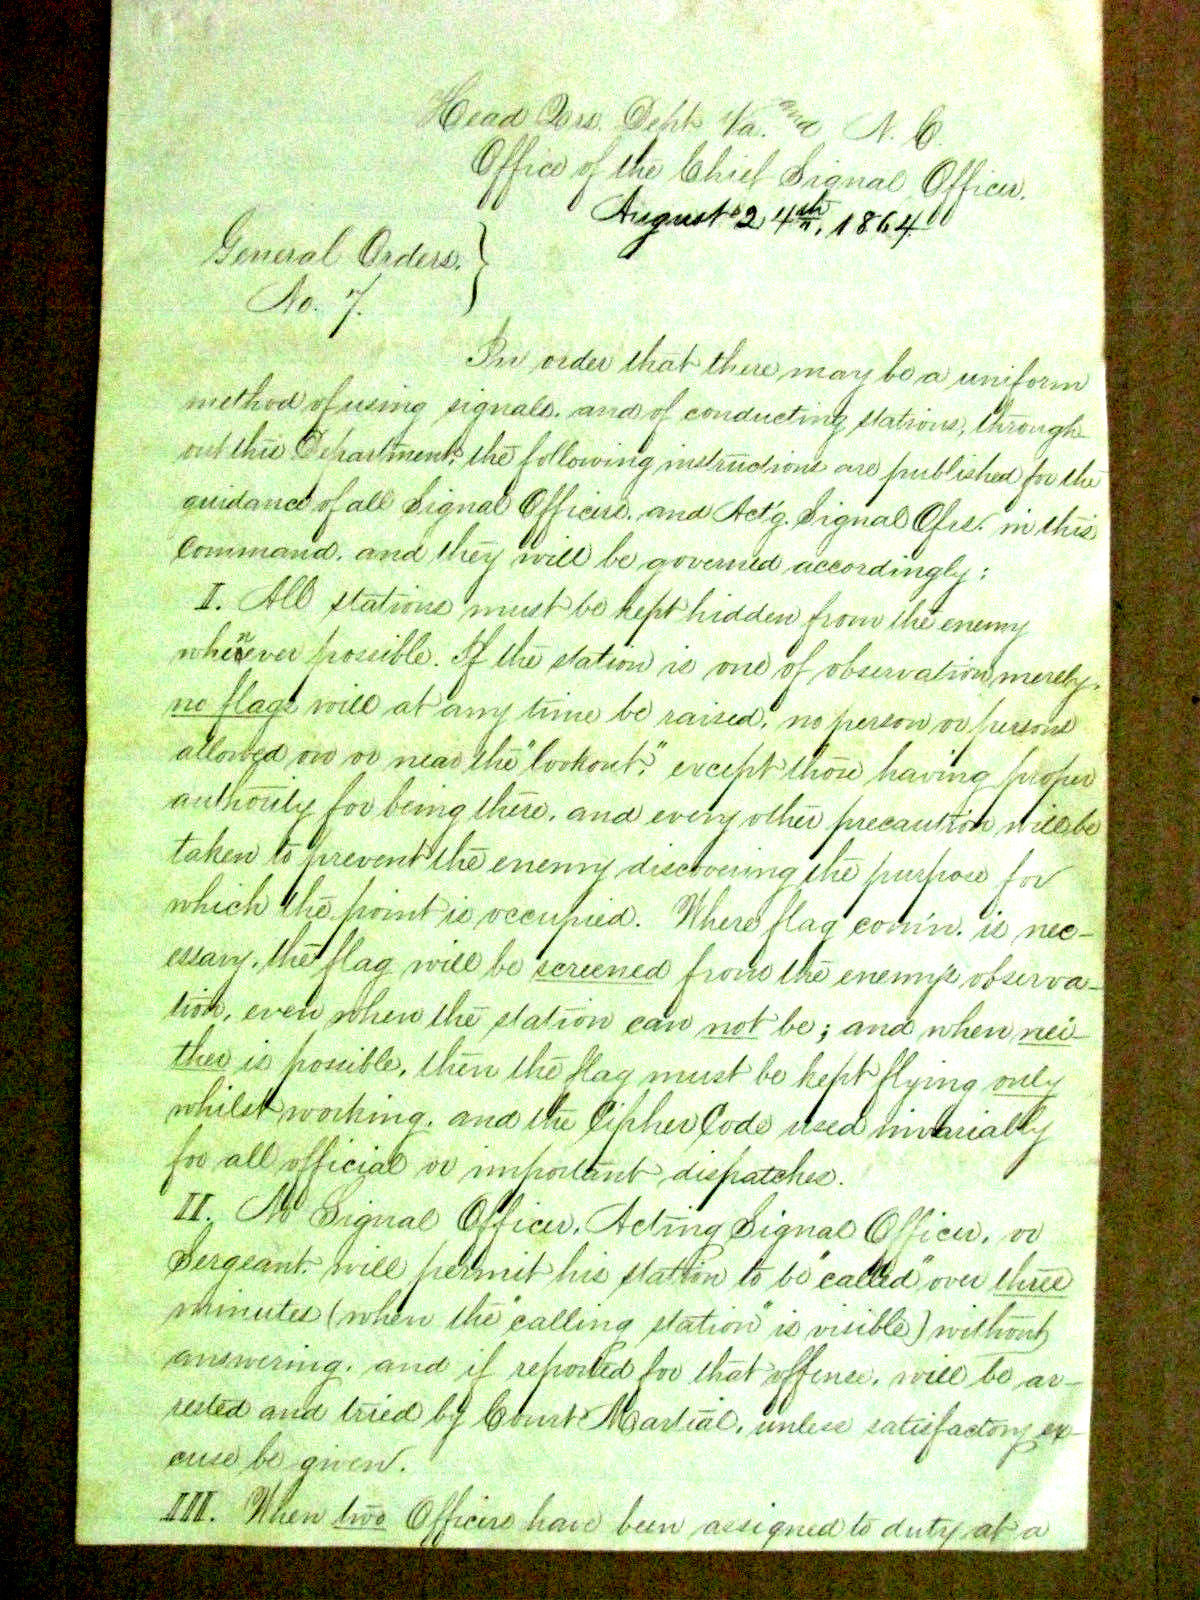 Head Qrs. Dept Va. and N. C.
Office of the Chief Signal Officer.
August 24th, 1864.
General Orders. }
No. 7.
In order that there may be a uniform
method of using signals. and of conducting stations, through-
out this Department, the following instructions are published for the
guidance of all Signal Officers. and Act'g. Signal Ofrs. in this
Command. and they will be governed accordingly:
I. All stations must be kept hidden from the enemy
whenever possible. If the station is one of observation merely,
no flags will at any time be raised, no person or persons
allowed on or near the "lookout," except those having proper
authority for being there, and every other precaution will be
taken to prevent the enemy discovering the purpose for
which the point is occupied. Where flag com'n. is nec-
essary, the flag will be screened from the enemy's observa-
tion, even when the station can not be; and when nei-
ther is possible, then the flag must be kept flying only
whilst working. and the Cipher Code used invariably
for all official or important dispatches.
II. No Signal Officer, Acting Signal Officer, or
Sergeant will permit his station to be "called" over three
minutes (when the "calling station" is visible) without
answering. and if reported for that offense, will be ar-
rested and tried by Court Martial, unless satisfactory ex-
cuse be given.
III. When two Officers have been assigned to duty at a